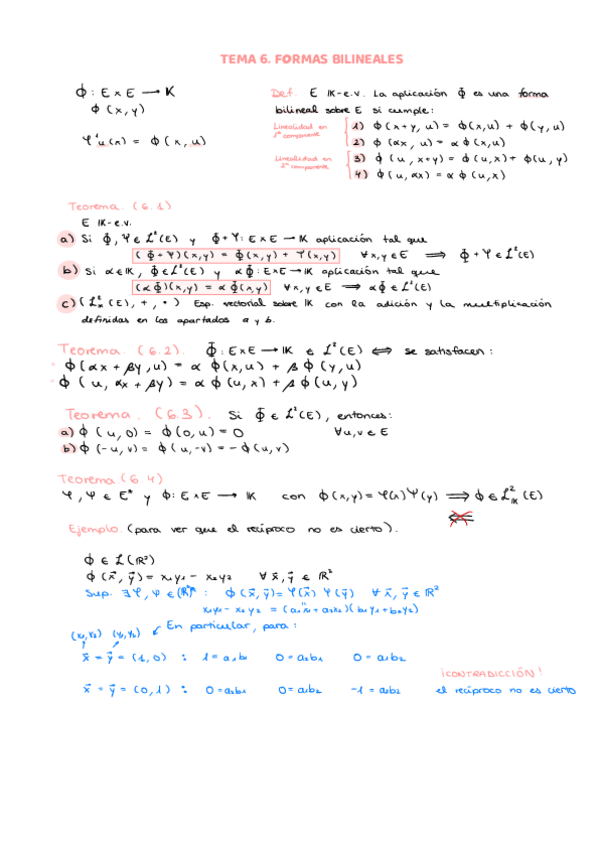 TEMA 6. FORMAS BILINEALES
Φ : E x E → K
Φ (x, y)
Def. E IK-e.v. La aplicación Φ es una forma
bilineal sobre E si cumple:
Linealidad en 1ª componente
1) Φ(x+y, u) = Φ(x,u) + Φ(y, u)
2) Φ(αx, u) = α Φ(x,u)
Linealidad en 2ª componente
3) Φ(u, x+y) = Φ(u,x) + Φ(u, y)
4) Φ(u, αx) = α Φ(u,x)
Teorema. (6.1)
E IK-e.v.
a) Si Φ, Ψ ∈ L²(E) y Φ+Ψ: E x E → IK aplicación tal que
(Φ+Ψ)(x,y) = Φ(x,y) + Ψ(x,y) ∀x,y ∈ E ⟹ Φ+Ψ ∈ L²(E)
b) Si α ∈ IK, Φ ∈ L²(E) y αΦ : E x E → IK aplicación tal que
(αΦ)(x,y) = α Φ(x,y) ∀x,y ∈ E ⟹ αΦ ∈ L²(E)
c) (L²ₖ(E), +, •) Esp. vectorial sobre IK con la adición y la multiplicación
definidas en los apartados a y b.
Teorema. (6.2). Φ : E x E → IK ∈ L²(E) ⟺ se satisfacen :
Φ(αx + βy, u) = α Φ(x,u) + β Φ(y, u)
Φ(u, αx + βy) = α Φ(u, x) + β Φ(u, y)
Teorema. (6.3). Si Φ ∈ L²(E), entonces:
a) Φ(u, 0) = Φ(0, u) = 0 ∀u,v ∈ E
b) Φ(-u, v) = Φ(u, -v) = -Φ(u, v)
Teorema (6.4)
φ, Ψ ∈ E* y Φ: E x E → IK con Φ(x,y) = φ(x)Ψ(y) ⟹ Φ ∈ L²ₖ(E)
Ejemplo. (para ver que el recíproco no es cierto).
Φ ∈ L(R²)
Φ(x⃗, y⃗) = x₁y₁ - x₂y₂ ∀ x⃗, y⃗ ∈ R²
Sup. ∃ φ, Ψ ∈ (R²)* : Φ(x⃗, y⃗) = φ(x⃗) Ψ(y⃗) ∀ x⃗, y⃗ ∈ R²
x₁y₁ - x₂y₂ = (a₁x₁ + a₂x₂)(b₁y₁ + b₂y₂)
(x₁,x₂) (y₁,y₂) En particular, para :
x⃗ = y⃗ = (1, 0) : 1 = a₁b₁ 0 = a₂b₁ 0 = a₁b₂
¡CONTRADICCIÓN!
x⃗ = y⃗ = (0, 1) : 0 = a₂b₁ 0 = a₁b₂ -1 = a₂b₂ el recíproco no es cierto